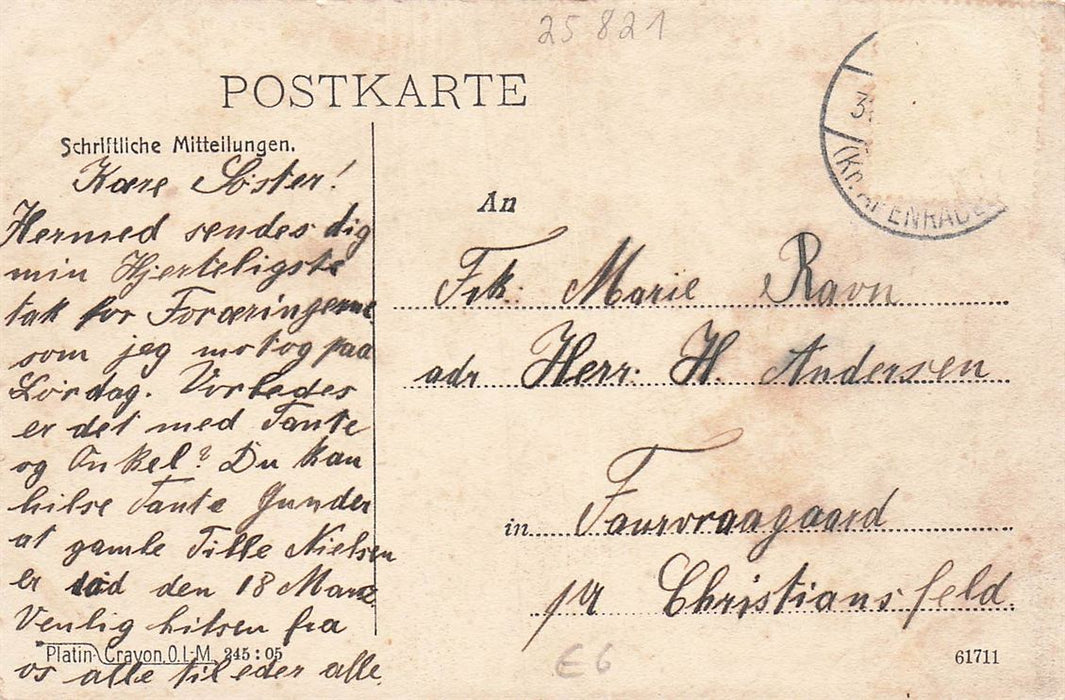 25821
POSTKARTE
Schriftliche Mitteilungen.
Kære Söster!
Hermed sendes dig
min Hjerteligste
tak for Foræringerne
som jeg motog paa
Lördag. Vorledes
er det med Tante
og Onkel? Du kan
hilse Tante Gunder
at gamle Tille Nielsen
er död den 18 Marz
Venlig hilsen fra
os alle til eder alle.
Platin-Crayon, O.L-M. 245:05
3
(Kr. APENRADE
An
Frk. Marie Ravn
adr Herr. H. Andersen
in Faurvraagaard
pr Christiansfeld.
E6
61711